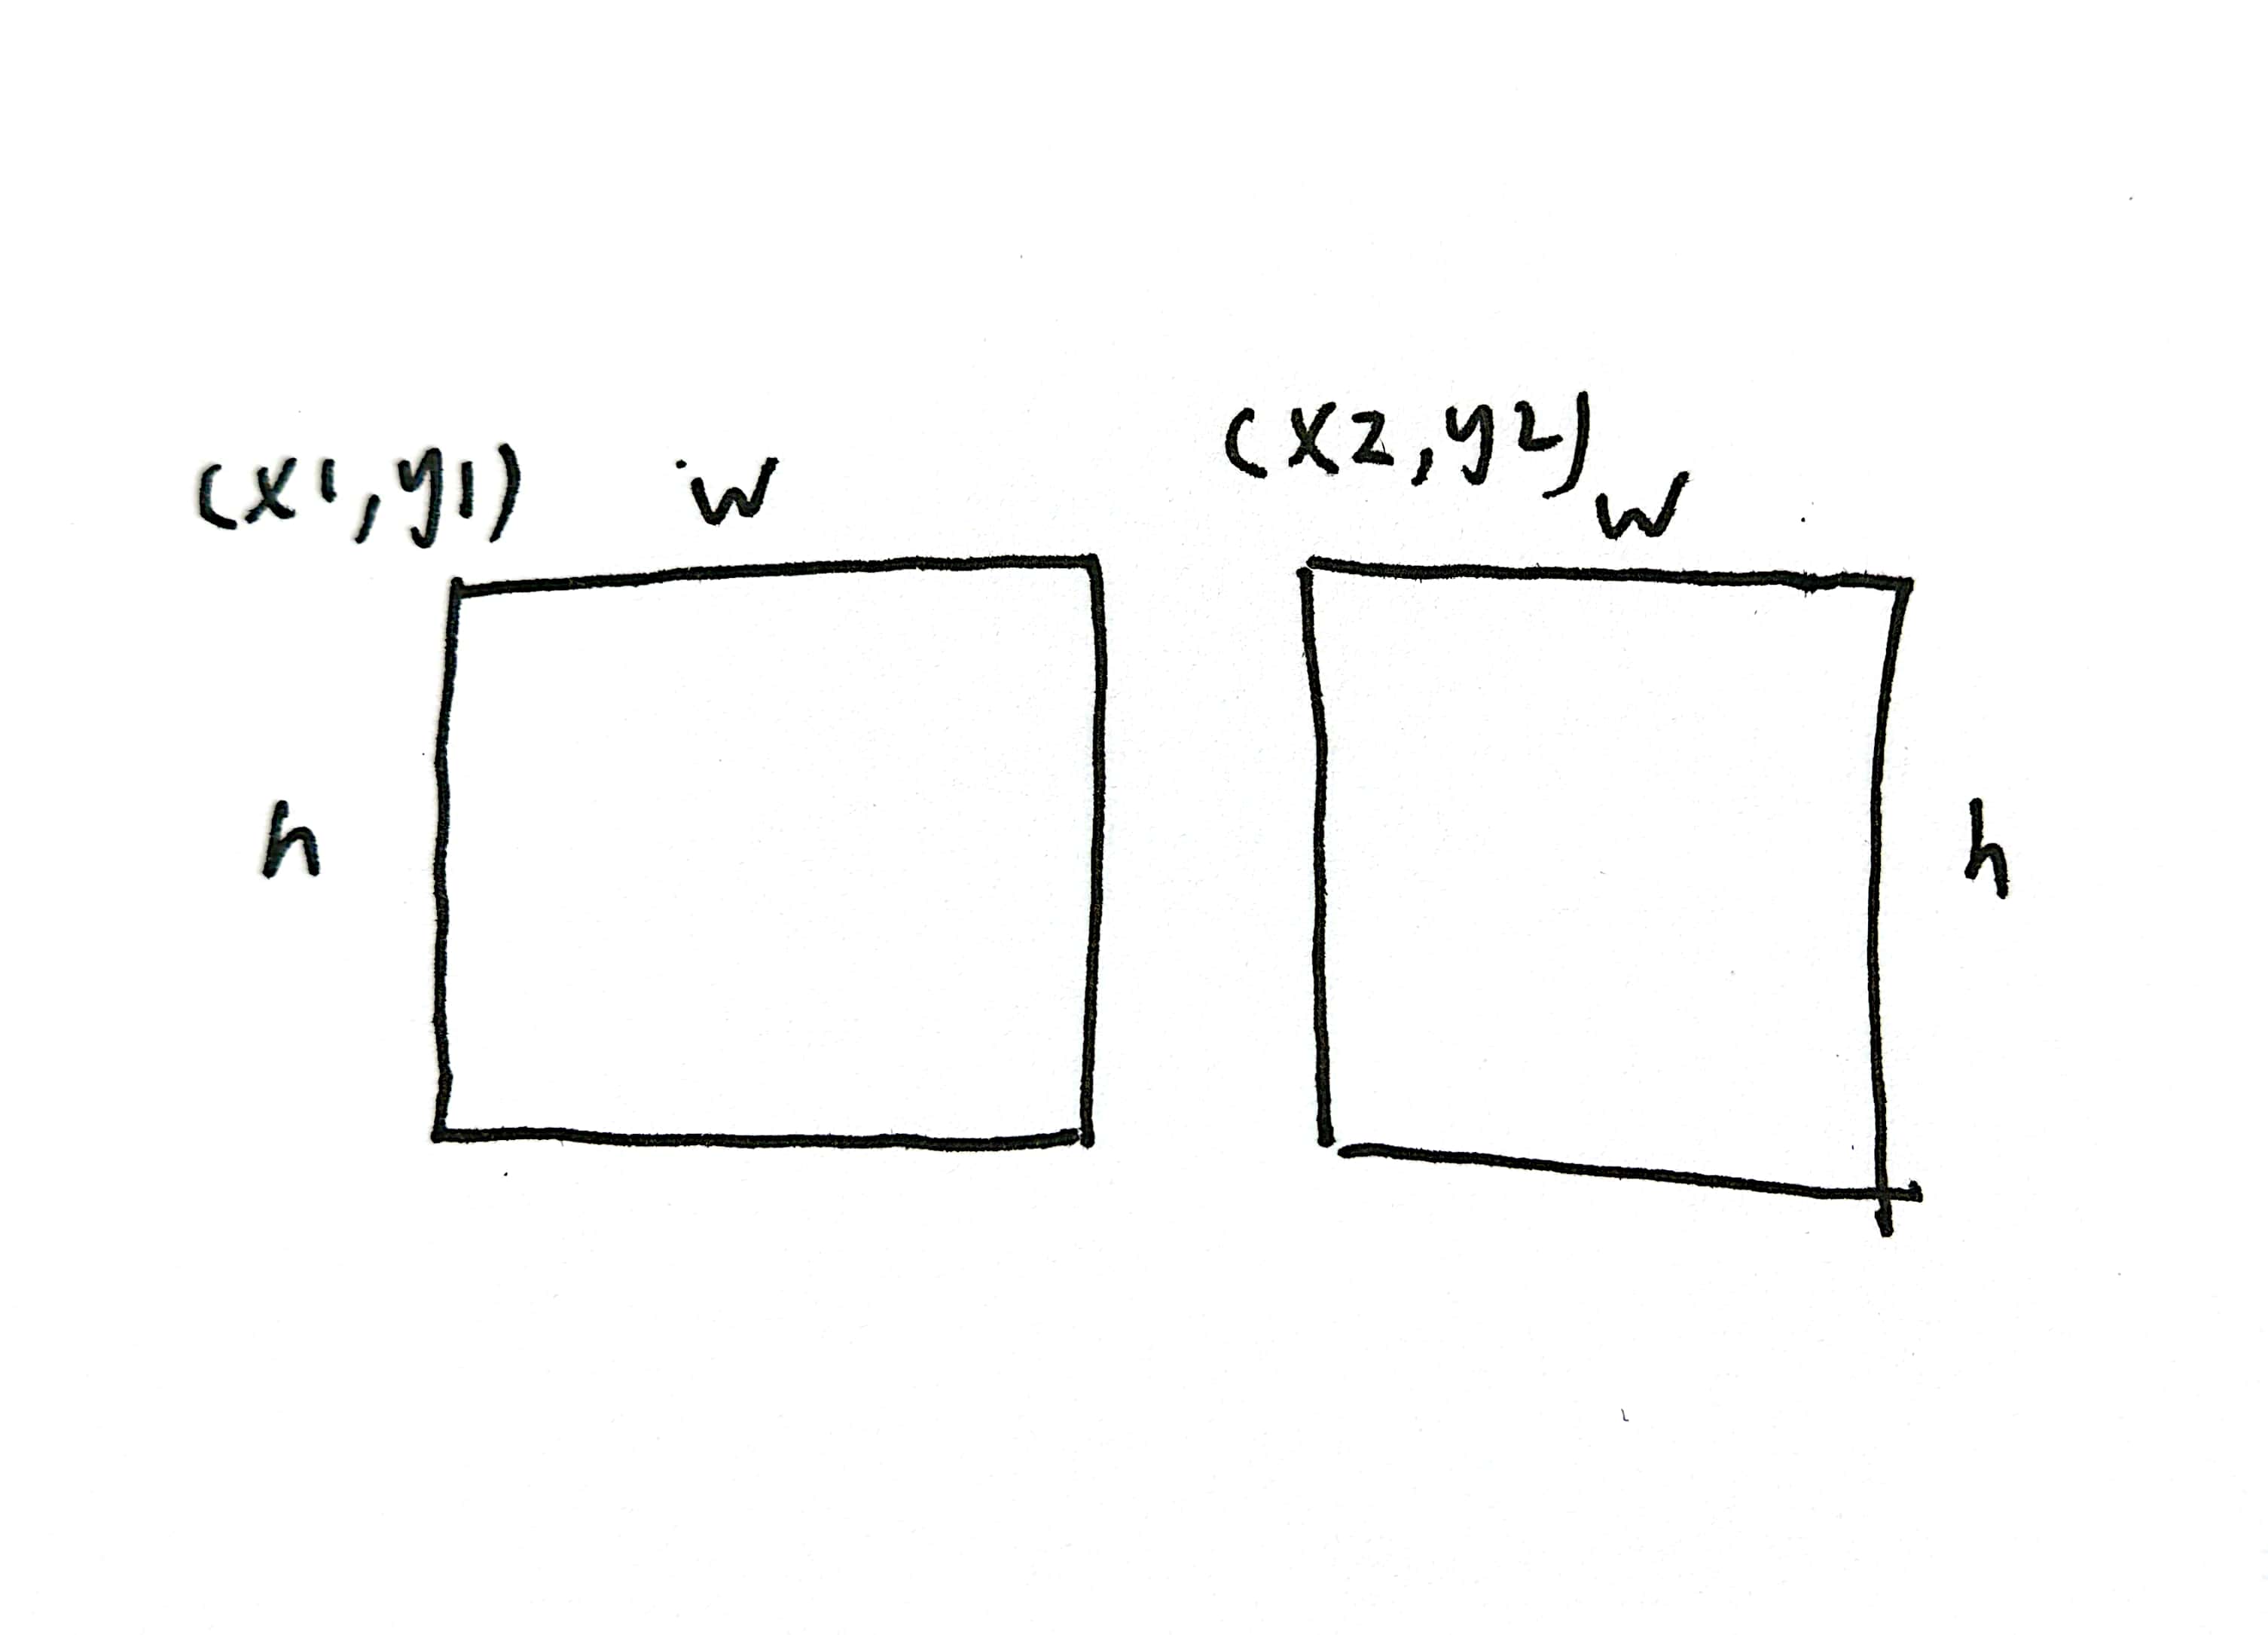 (x1,y1) w (x2,y2) w
h h